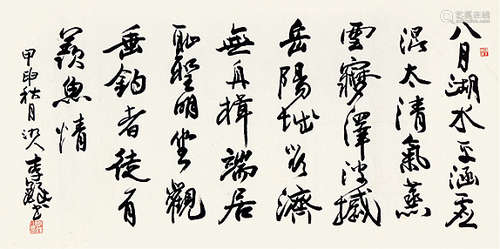 八月湖水平涵虚
混太清氣蒸
雲夢澤波撼
岳陽城欲濟
無舟楫端居
恥聖明坐觀
垂釣者徒有
羡魚情
甲申秋月 李鐸書